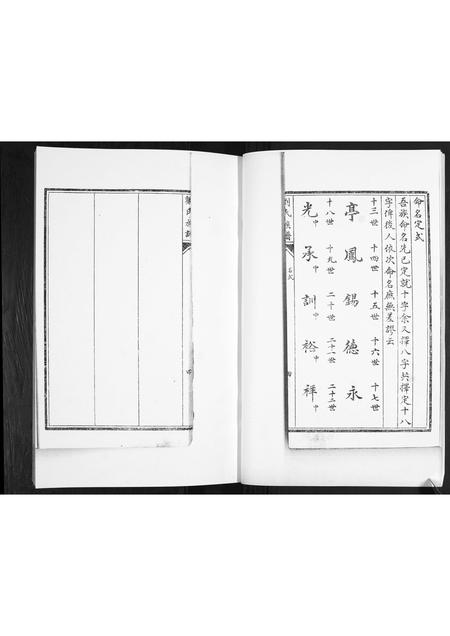 命名定式
吾族命名先已定就十字余又擇八字共擇定十八
字俾後人依次命名庶無差謬云
十三世 十四世 十五世 十六世 十七世
亭 鳳 錫 德 永
十八世 十九世 二十世 二十一世 二十二世
光中 承中 訓中 裕 祥中
劉氏族譜
名式